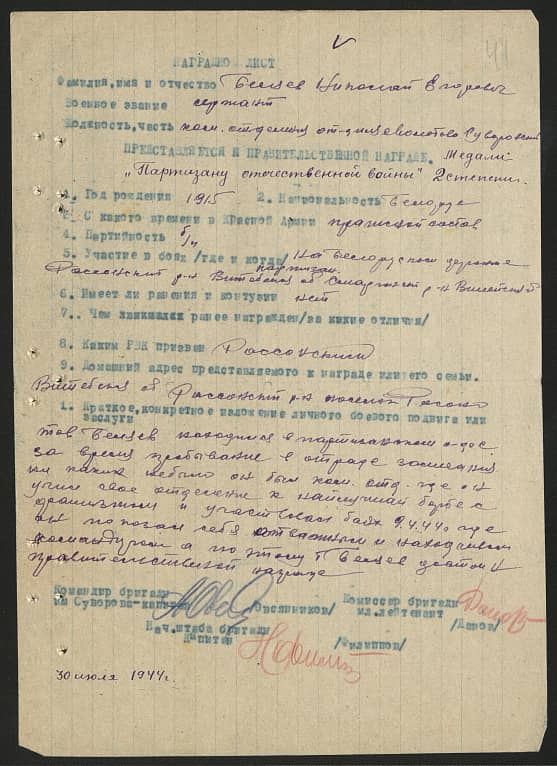 41
НАГРАДНОЙ ЛИСТ
Фамилия, имя и отчество Бещев Николай Егорович
Военное звание сержант
Должность, часть ком. отделения Суворовской
ПРЕДСТАВЛЯЕТСЯ К ПРАВИТЕЛЬСТВЕННОЙ НАГРАДЕ. Медали
"Партизану отечественной войны" 2 степени.
1. Год рождения 1915 2. Национальность белорус
3. С какого времени в Красной Армии состав
4. Партийность б/п
5. Участие в боях /где и когда/ на Белоруской
партизан.
Россонский р-н Витебская об р-н
6. Имеет ли ранения и контузии нет
7. Чем ранее награжден/за какие отличия/
8. Каким РВК призван Россонский
9. Домашний адрес представляемого к награде или его семьи.
Витебская об Россонский р-н
1. Краткое, конкретное изложение личного боевого подвига или
заслуги
тов Бещев находился в партизанском
за время пребывание в отряде замечания
ни каких небыло он был ком. отд. где он
учил свое отделение к наилучшей борьбе с
и участвовал боях 9.4.44г где
он показал себя отважным и находчивым
командиром а по этому т Бещев достоин
правительственной награде
Командир бригады
им Суворова-капитан /Овсянников/
Комиссар бригады
мл.лейтенант /Данов/
Нач.штаба бригады
Капитан /Филиппов/
30 июля 1944г.